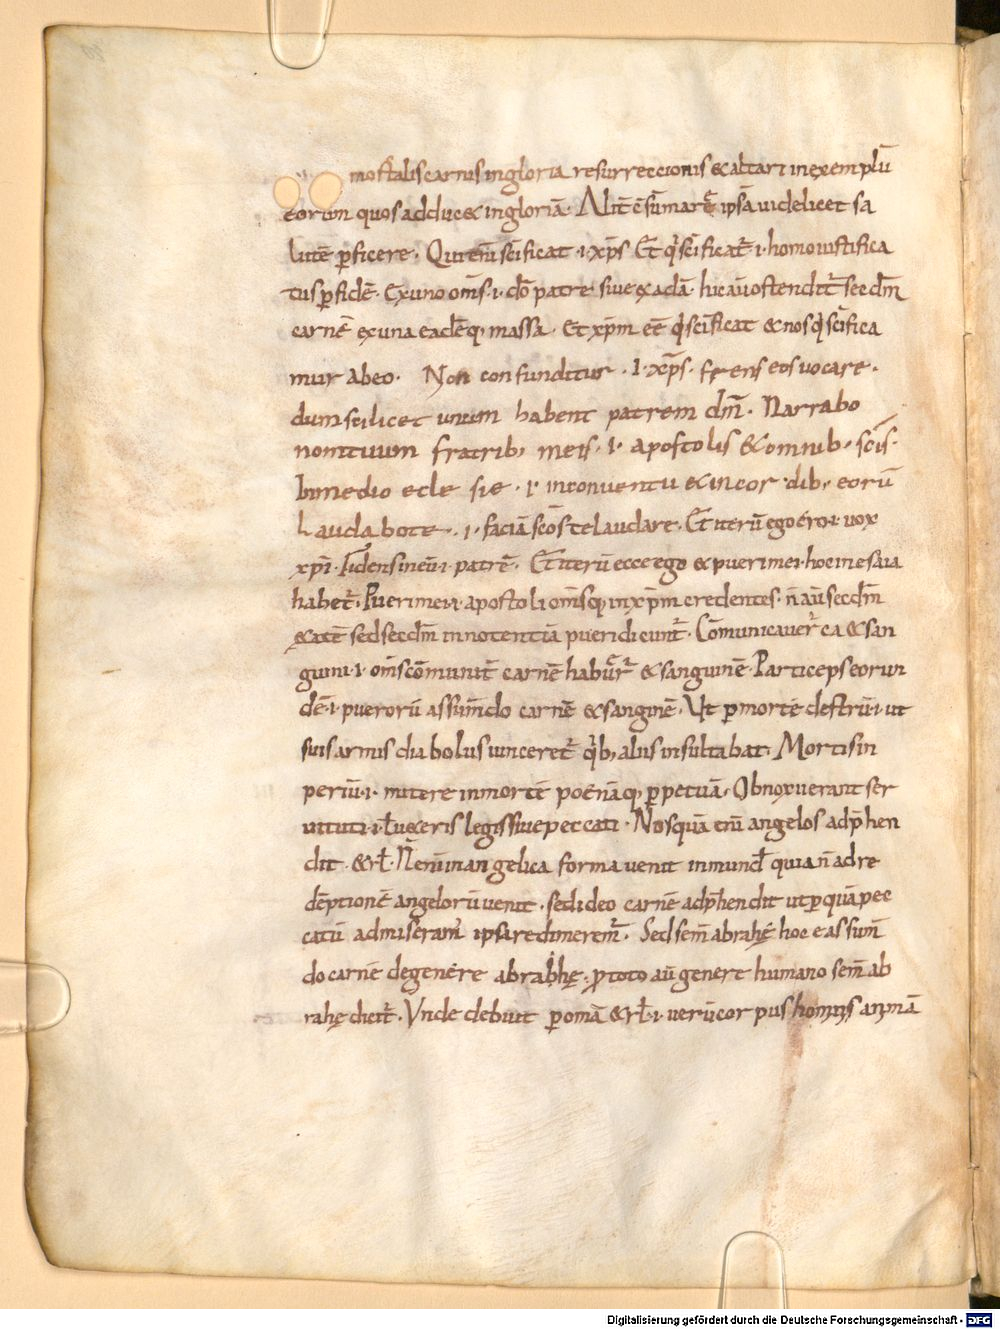 mortalis carnis in gloria resurreccionis & altari in exemplū
eorum quos adduc& in gloriā. Alit̄ c̄sūmare ipsā videlicet sa
lutē ꝑficere. Qui enī scīficat .i. xp̄s Et q͛ scīficat̄ .i. homo iustifica
tus ꝑ fidē. Ex uno om̄s .i. dō patre sive ex adā. hic aū ostendit̄ secdm̄
carnē ex una eadēq; massa. Et xp̄m eē q͛ scīficat & nos q͛ scīfica
mur abeo. Non confunditur .i. xp̄s. frens eos vocare.
dum scilicet unum habent patrem dm̄. Narrabo
nom tuum fratrib; meis .i. apostolis & omnib; scīs.
In medio ecle sie .i. in conventu & in cor dib; eorū
Laudabo te .i. faciā scōs te laudare. Et iterū ego ero .i. vox
xp̄i. Fidens in eū .i. patrē. Et iterū ecce ego & pueri mei. hoc in esaia
habet̄. Pueri mei .i. apostoli om̄sq; in xp̄m credentes. n̄ aū secdm̄
&atē sed secdm̄ innocentiā pueri dicunt̄. Cōmunicaver̄ ca & san
guini .i. om̄s cōmunit̄ carnē habuer̄ & sanguinē. Particeps eorun
dē .i. puerorū assumēdo carnē & sanginē. Ut ꝑ mortē destrū .i. ut
suis armis diabolus vinceret̄ q͛b; alus insultabat. Mortis in
periū .i. mitere in mortē poenāq; ꝑpetuā. Obnoxii erant ser
vituti .i. luxeris legis sive peccati. Nosquā enī angelos adp̄hen
dit. & rł. N̄ enī in angelica forma venit in mund̄ quia n̄ ad re
dēptionē angelorū venit. sed ideo carnē adp̄hendit ut ꝑ quā pec
catū admiserant ipsa redimerent̄. Sed sem̄ abrahę hoc e assum̄
do carnē de genere abrahę. ꝓ toto aū genere humano sem̄ ab
rahę dicit̄. Unde debuit ꝑ omā & rł .i. verū corpus hominis animā